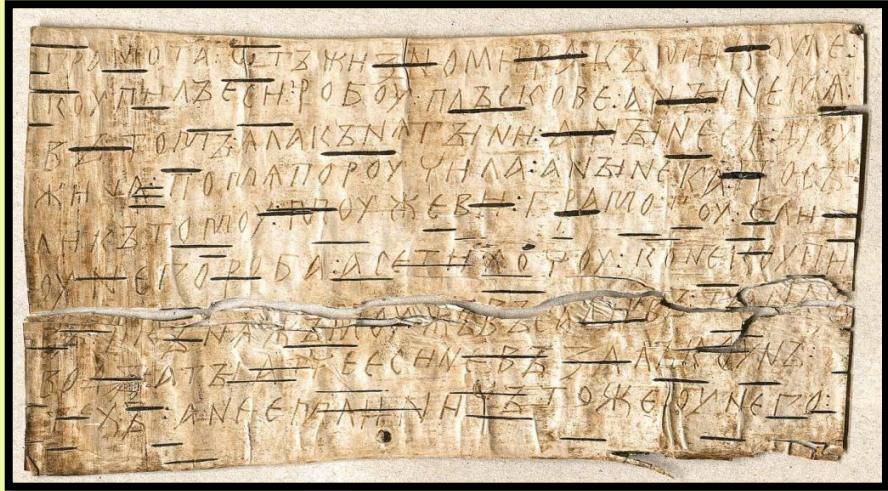 ГРАМОТА : ѠТЪ ЖИЗНОМИРА : КЪ МИКОУЛЕ :
КОУПИЛЪ ЕСИ : РОБОУ : ПЛЪСКОВЕ : А НЪІНЕ МѦ :
ВЪ ТОМЪ : ѦЛА КЪНѦГЪІНИ : А НЪІНЕ СѦ ДРОУ
ЖИНА : ПО МѦ ПОРОУЧИЛА : А НЪІНЕ КА : ПОСЪ
ЛИ КЪ ТОМОУ : МОУЖЕВИ : ГРАМОТОУ : Е ЛИ
ОУ НЕГО РОБА : А СЕ ТИ ХОЧОУ : КОНЕ КОУПИ
МОУЖЪ ВЪСАДИВЪ : ТА НА
ВОДЪІ : А ТЪІ АЧЕ ЕСИ НЕ ВЪЗАЛЪ КОУНЪ
ТЕХЪ : А НЕ ЕМЛИ : НИЧЪТО ЖЕ ОУ НЕГО :